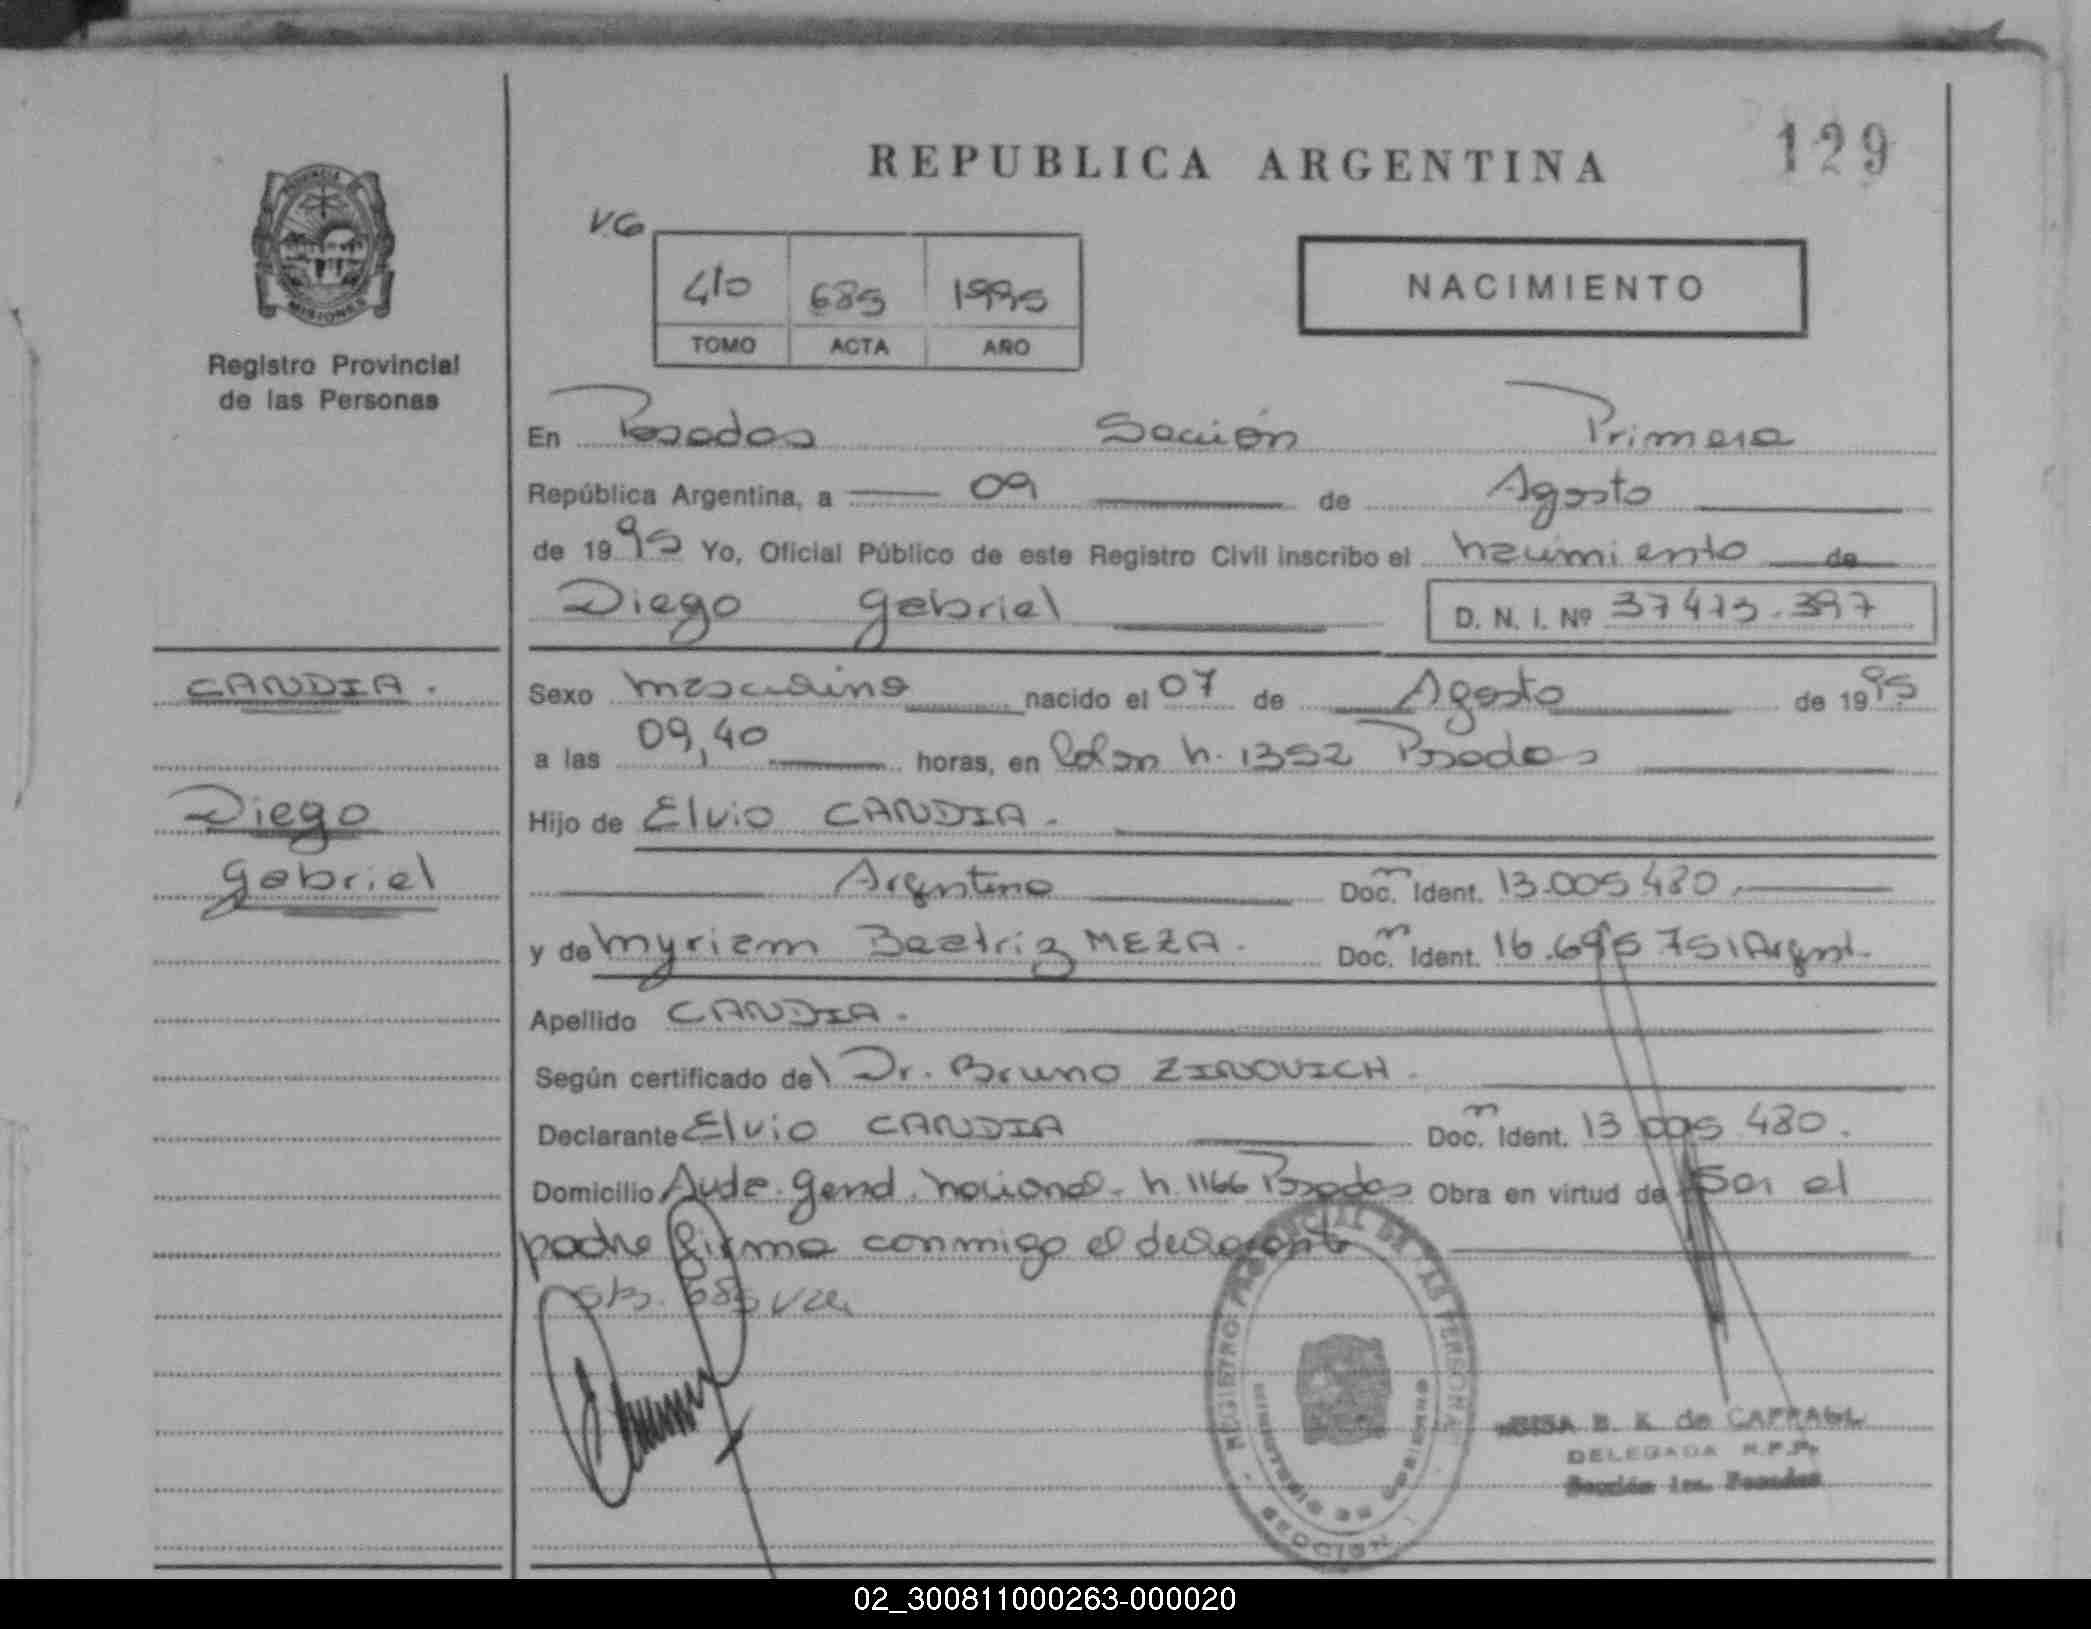 129
REPUBLICA ARGENTINA
PROVINCIA DE
MISIONES
Registro Provincial
de las Personas
VG
410 685 1995
TOMO ACTA AÑO
NACIMIENTO
En Posadas Sección Primera
República Argentina, a 09 de Agosto
de 1995 Yo, Oficial Público de este Registro Civil inscribo el nacimiento de
Diego Gabriel D. N. I. Nº 37473.397
CANDIA.
Diego
Gabriel
Sexo masculino nacido el 07 de Agosto de 1995
a las 09,40 horas, en Colon n. 1352 Posadas
Hijo de Elvio CANDIA.
Argentino Doc. Ident. 13.005 480.
y de Myriam Beatriz MEZA. Doc. Ident. 16.695 751 Argent.
Apellido CANDIA.
Según certificado del Dr. Bruno ZINOVICH.
Declarante Elvio CANDIA Doc. Ident. 13 005 480.
Domicilio Avda. Gend. Nacional. n. 1166 Posadas Obra en virtud de ser el
padre firma conmigo el declarante
685
REGISTRO PROVINCIAL DE LAS PERSONAS
MINISTERIO DE GOBIERNO
SECCION 1
B. K. de
DELEGADA R.P.P.
Sección 1ra. Posadas
02_300811000263-000020